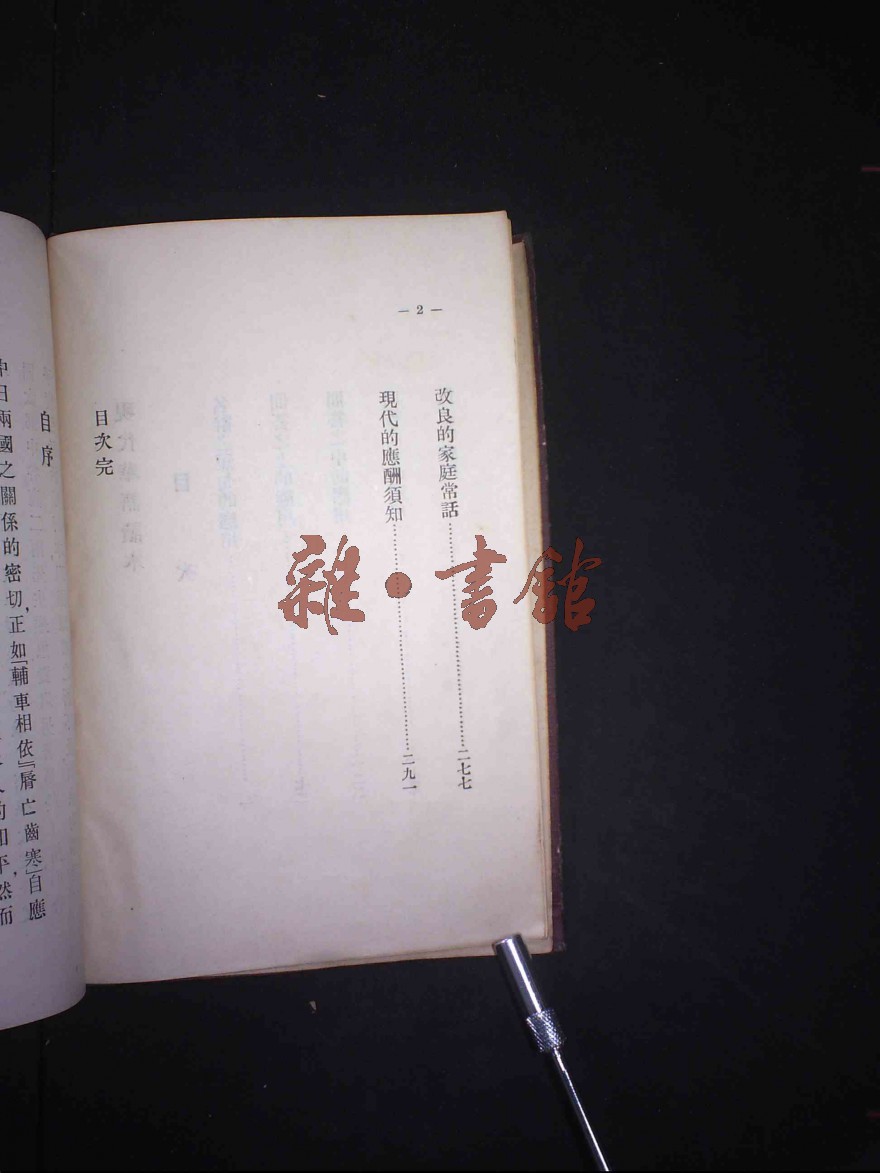 — 2 —
改良的家庭常話……………………二七七
現代的應酬須知……………………二九一
目次完
自序
中日兩國之關係的密切,正如「輔車相依』『脣亡齒寒」自應
的和平,然而
雜·書館